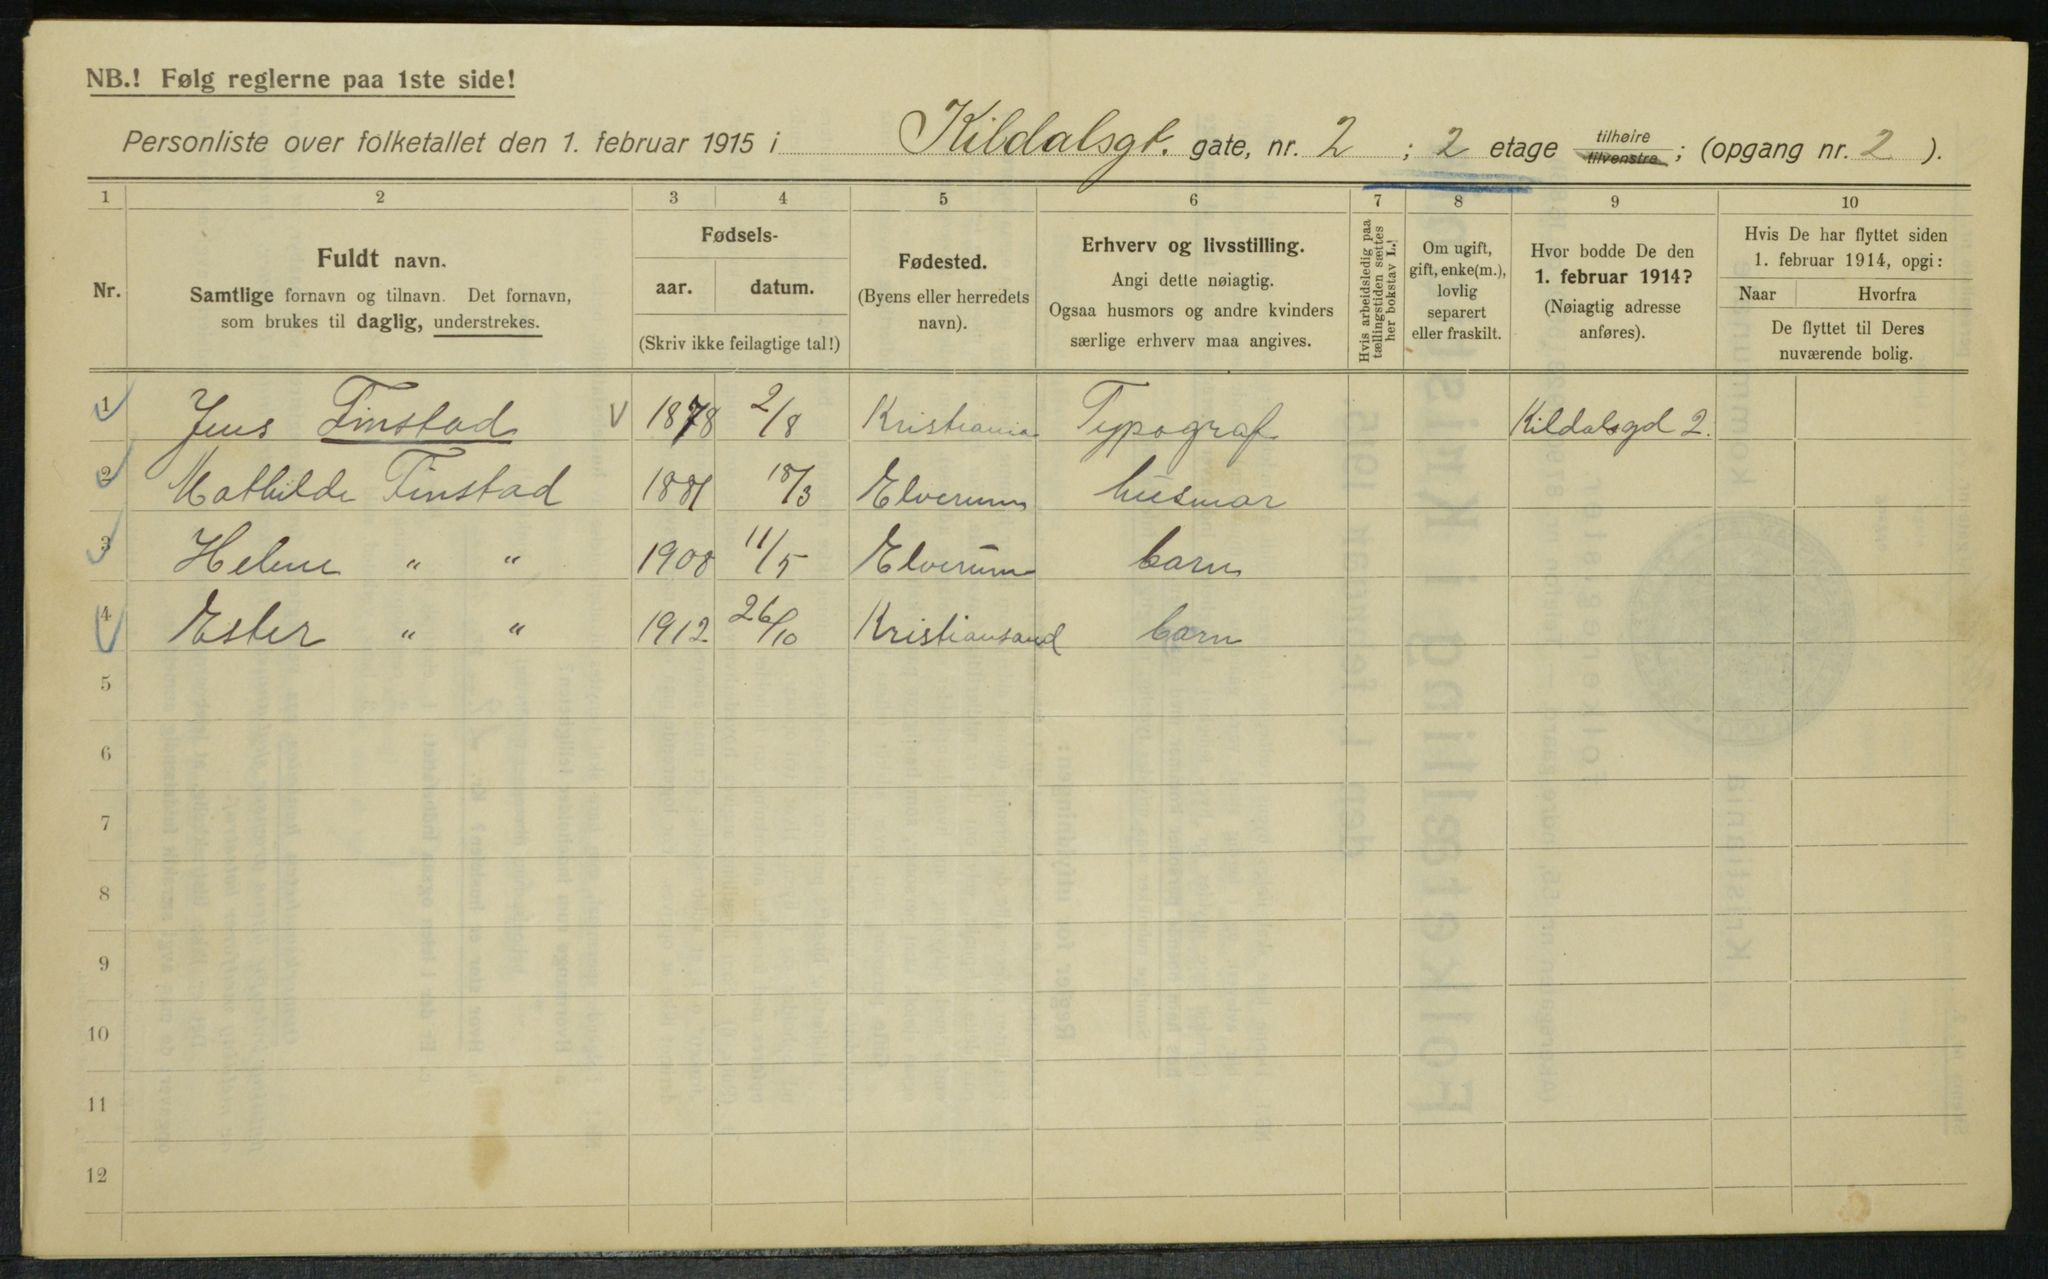 NB.! Følg reglerne paa 1ste side!
Personliste over folketallet den 1. februar 1915 i Kildalsgt. gate, nr. 2 ; 2 etage tilhøire tilvenstre ; (opgang nr. 2 ).
1 2 3 4 5 6 7 8 9 10
Nr.
Fuldt navn.
Samtlige fornavn og tilnavn. Det fornavn,
som brukes til daglig, understrekes.
Fødsels-
aar. datum.
(Skriv ikke feilagtige tal!)
Fødested.
(Byens eller herredets
navn).
Erhverv og livsstilling.
Angi dette nøiagtig.
Ogsaa husmors og andre kvinders
særlige erhverv maa angives.
Hvis arbeidsledig paa
tællingstiden sættes
her bokstav L.!
Om ugift,
gift, enke(m.),
lovlig
separert
eller fraskilt.
Hvor bodde De den
1. februar 1914?
(Nøiagtig adresse
anføres).
Hvis De har flyttet siden
1. februar 1914, opgi:
Naar Hvorfra
De flyttet til Deres
nuværende bolig.
1 Jens Finstad 1878 2/8 Kristiania Typograf Kildalsgd 2.
2 Mathilde Finstad 1881 18/3 Elverum husmor
3 Helene " " 1908 11/5 Elverum barn
4 Ester " " 1912 26/10 Kristiansand barn
5
6
7
8
9
10
11
12